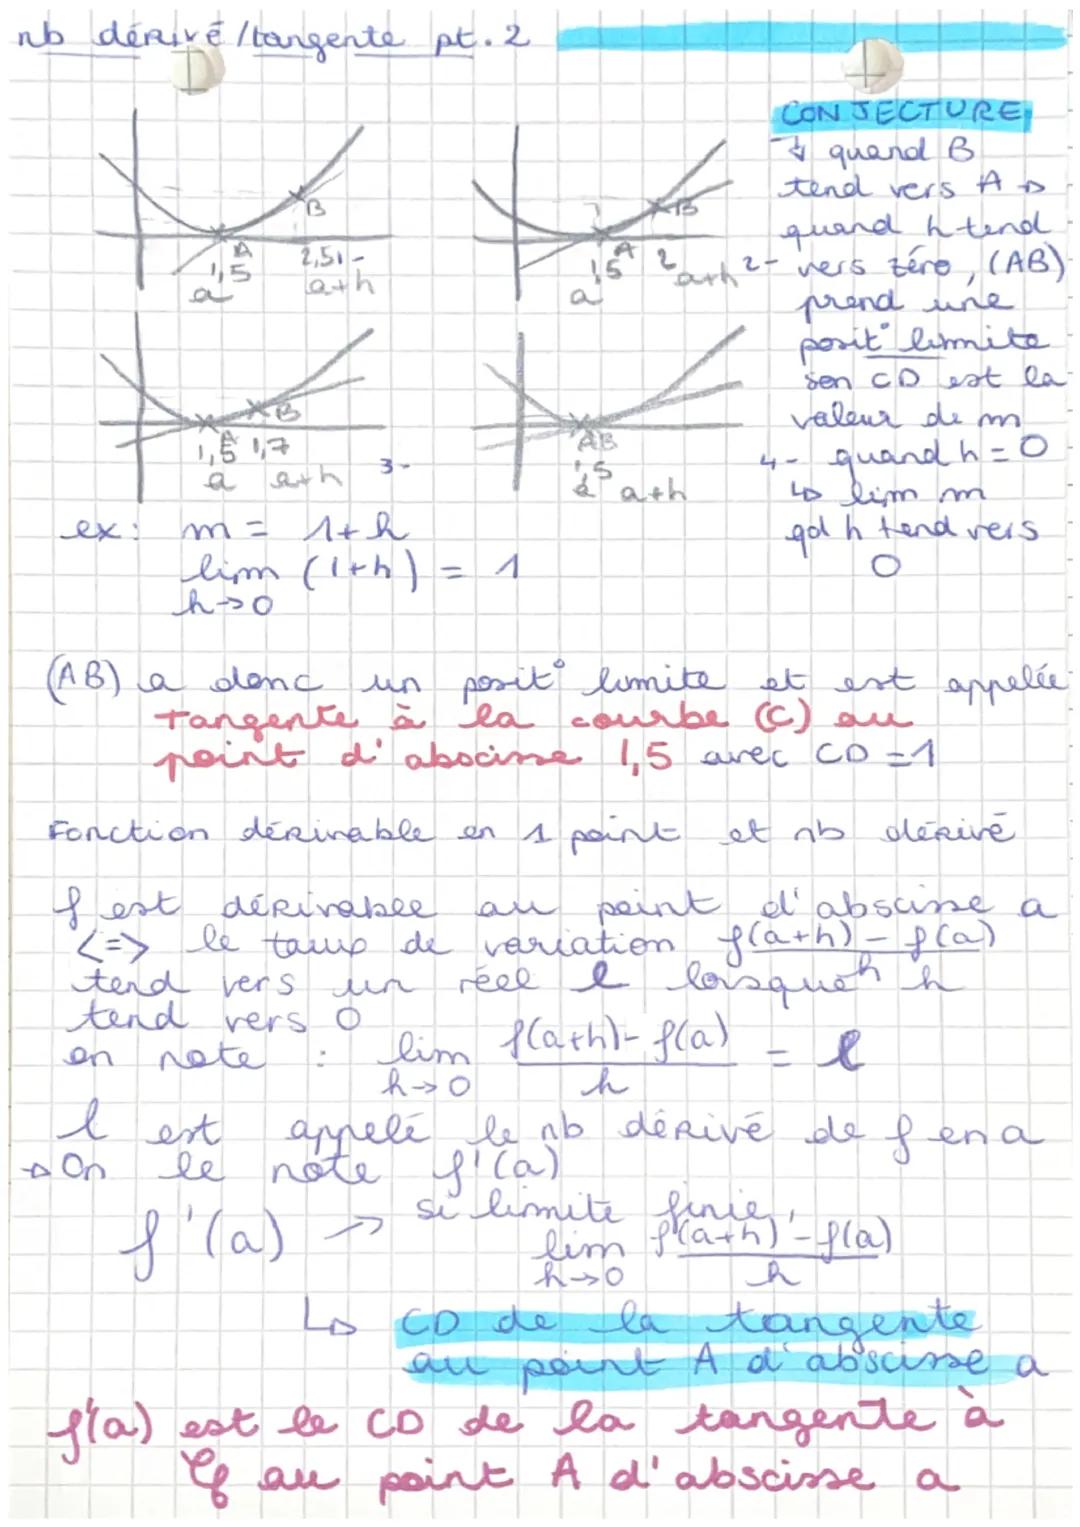 nb dérivé / tangente pt. 2
CONJECTURE
↓ quand B
tend vers A →
quand h tend
vers zéro, (AB)
prend une
posit° limite
son CD est la
valeur de m
quand h = 0
↳ lim m
qd h tend vers
0
A B
1,5 2,5 1-
a a+h
A B
1,5 2 2-
a a+h
A B
1,5 1,7 3-
a a+h
AB 4-
1,5
a a+h
ex: m = 1+h
lim (1+h) = 1
h→0
(AB) a donc un posit° limite et est appelée
Tangente à la courbe (C) au
point d'abscisse 1,5 avec CD = 1
Fonction dérivable en 1 point et nb dérivé
f est dérivable au point d'abscisse a
<=> le taux de variation f(a+h) - f(a)
h
tend vers un réel l lorsque h
tend vers 0
on note : lim f(a+h) - f(a) = l
h→0 h
l est appelé le nb dérivé de f en a
→ On le note f'(a)
f'(a) → si limite finie,
lim f(a+h) - f(a)
h→0 h
↳ CD de la tangente
au point A d'abscisse a
f'(a) est le CD de la tangente à
Cf au point A d'abscisse a